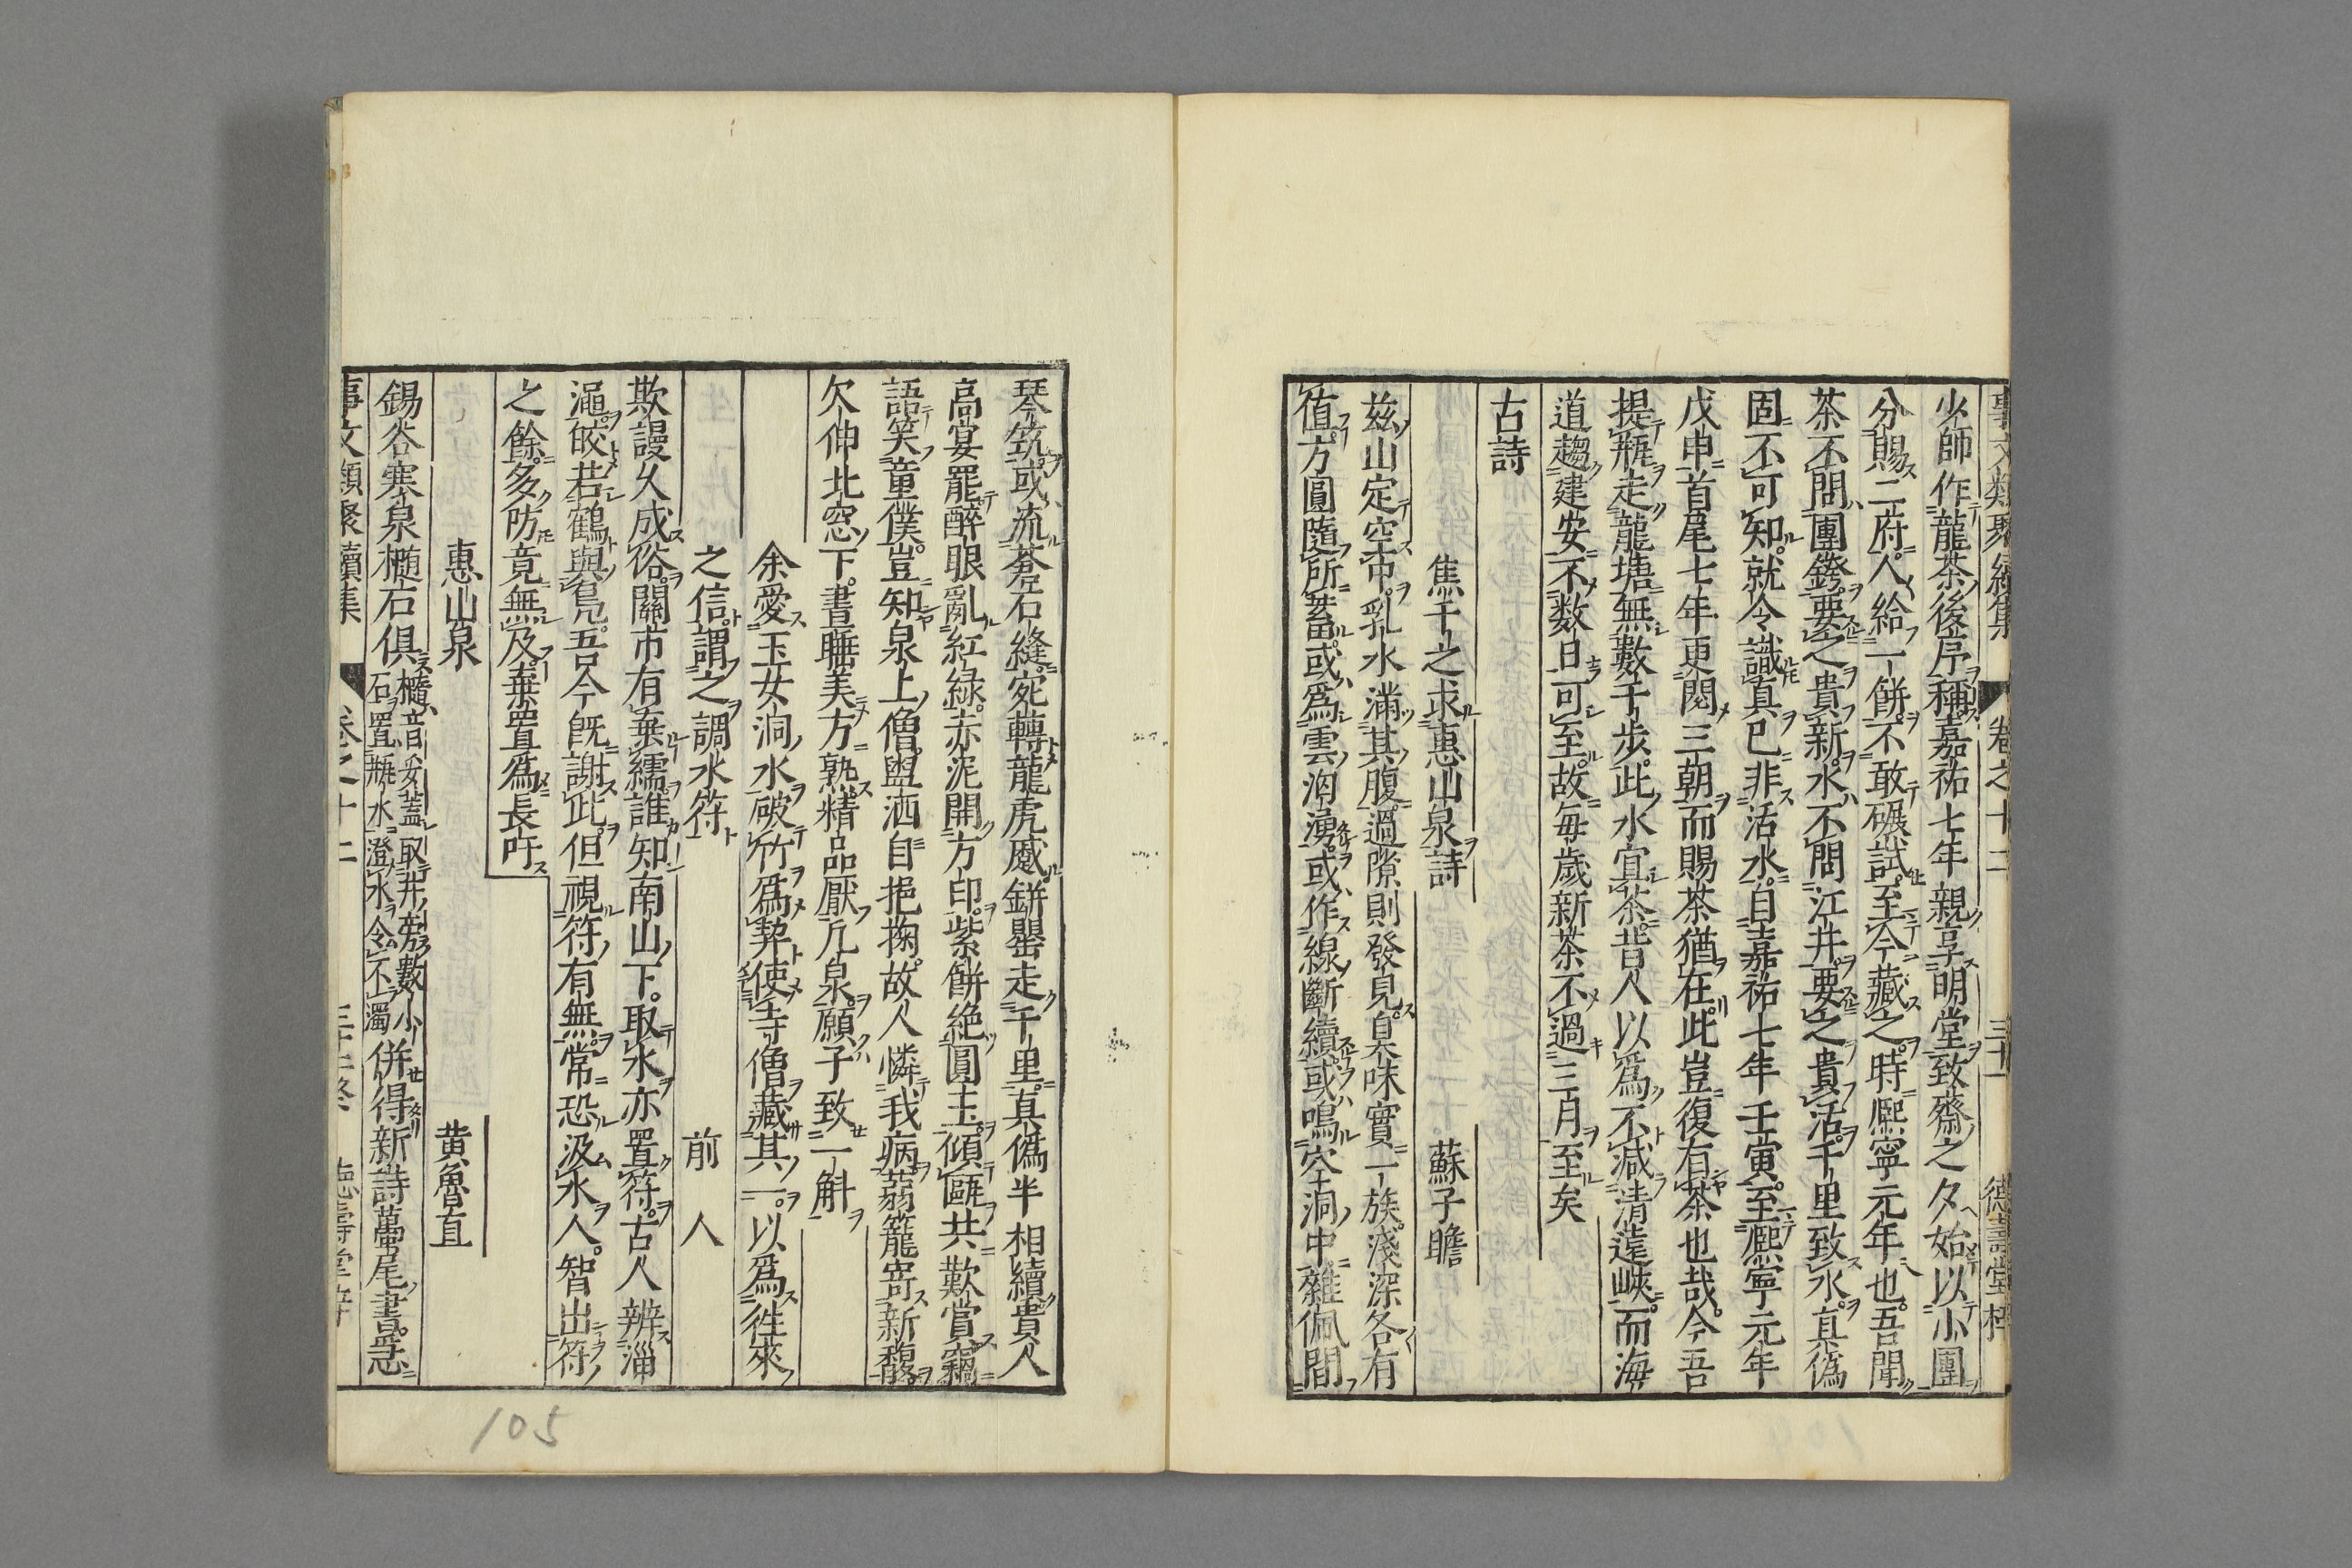 事文類聚續集 卷之十二 三十一 德壽堂梓
少師作龍茶後序稱嘉祐七年親享明堂致齋之夕始以小團
分賜二府人給一餅不敢碾試至今藏之時熈寧元年也吾聞
茶不問團銙要之貴新水不問江井要之貴活千里致水真偽
固不可知就令識真已非活水自嘉祐七年壬寅至熈寧元年
戊申首尾七年更閱三朝而賜茶猶在此豈復有茶也哉今吾
提瓶走龍塘無數千步此水宜茶昔人以爲不減清遠峽而海
道趨建安不数日可至故每歲新茶不過三月至矣
古詩
焦千之求惠山泉詩 蘇子瞻
兹山定空中乳水滿其腹過隙則發見臭味實一族淺深各有
值方圓隨所蓄或爲雲洶湧或作線斷續或鳴空洞中雜佩間
琴筑或流蒼石縫宛轉龍虎蹙缾罌走千里真僞半相續貴人
高宴罷醉眼亂紅綠赤泥開方印紫餅絶圓玉傾甌共歎賞竊
語笑童僕豈知泉上僧盥洒自挹掬故人憐我病蒻籠寄新馥
欠伸北窓下晝睡美方熟精品厭凡泉願子致一斛
余愛玉女洞水破竹爲契使寺僧藏其一以爲徃來
之信謂之調水符 前人
欺謾久成俗關市有棄繻誰知南山下取水亦置符古人辨淄
澠皎若鶴與鳧吾今既謝此但視符有無常恐汲水人智出符
之餘多防竟無及棄置爲長吁
惠山泉 黄魯直
錫谷寒泉橢石俱 橢音妥蓋取井旁數小石置瓶水澄水令不濁 併得新詩蠆尾書急
事文類聚續集 卷之十二